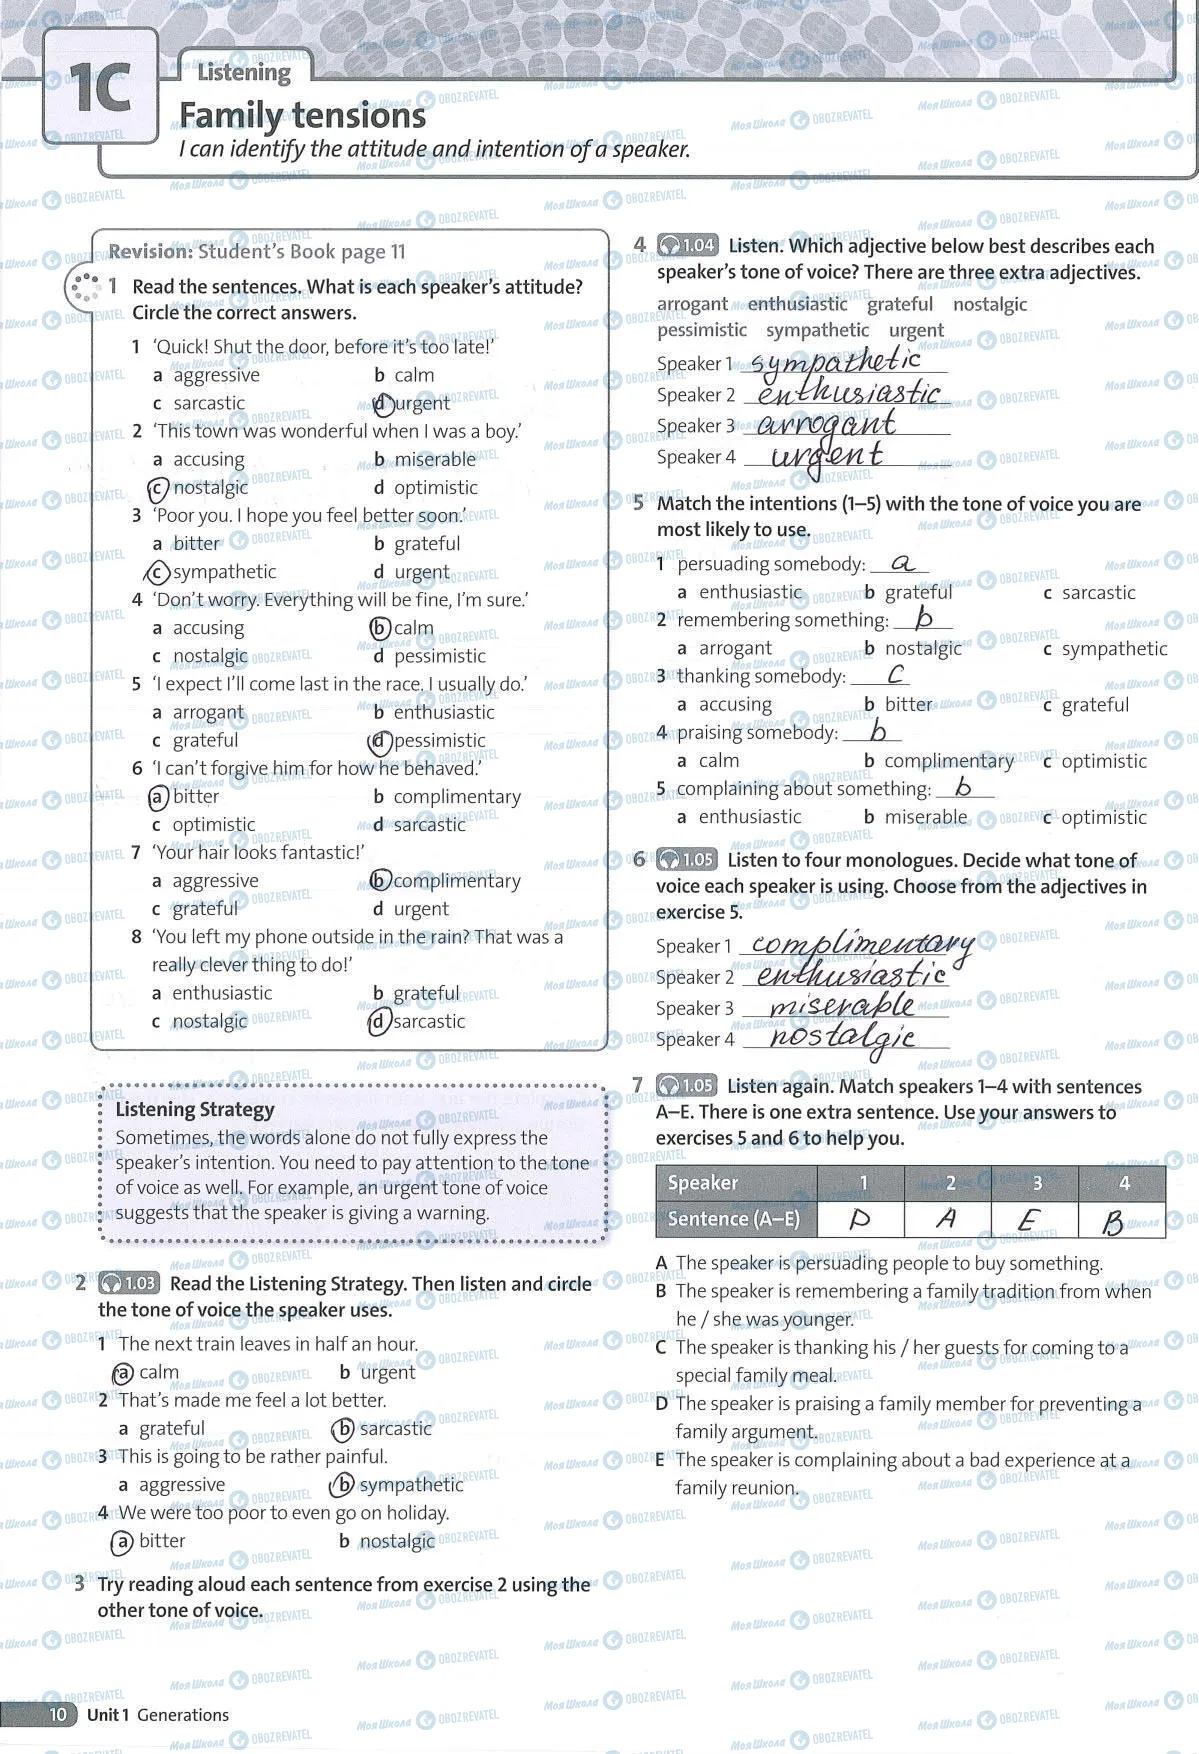 1C
Listening
Family tensions
I can identify the attitude and intention of a speaker.
Revision: Student's Book page 11
1 Read the sentences. What is each speaker's attitude?
Circle the correct answers.
1 'Quick! Shut the door, before it's too late!'
a aggressive b calm
c sarcastic d urgent
2 'This town was wonderful when I was a boy.'
a accusing b miserable
c nostalgic d optimistic
3 'Poor you. I hope you feel better soon.'
a bitter b grateful
c sympathetic d urgent
4 'Don't worry. Everything will be fine, I'm sure.'
a accusing b calm
c nostalgic d pessimistic
5 'I expect I'll come last in the race. I usually do.'
a arrogant b enthusiastic
c grateful d pessimistic
6 'I can't forgive him for how he behaved.'
a bitter b complimentary
c optimistic d sarcastic
7 'Your hair looks fantastic!'
a aggressive b complimentary
c grateful d urgent
8 'You left my phone outside in the rain? That was a
really clever thing to do!'
a enthusiastic b grateful
c nostalgic d sarcastic
Listening Strategy
Sometimes, the words alone do not fully express the
speaker's intention. You need to pay attention to the tone
of voice as well. For example, an urgent tone of voice
suggests that the speaker is giving a warning.
2 1.03 Read the Listening Strategy. Then listen and circle
the tone of voice the speaker uses.
1 The next train leaves in half an hour.
a calm b urgent
2 That's made me feel a lot better.
a grateful b sarcastic
3 This is going to be rather painful.
a aggressive b sympathetic
4 We were too poor to even go on holiday.
a bitter b nostalgic
3 Try reading aloud each sentence from exercise 2 using the
other tone of voice.
4 1.04 Listen. Which adjective below best describes each
speaker's tone of voice? There are three extra adjectives.
arrogant enthusiastic grateful nostalgic
pessimistic sympathetic urgent
Speaker 1 sympathetic
Speaker 2 enthusiastic
Speaker 3 arrogant
Speaker 4 urgent
5 Match the intentions (1–5) with the tone of voice you are
most likely to use.
1 persuading somebody: a
a enthusiastic b grateful c sarcastic
2 remembering something: b
a arrogant b nostalgic c sympathetic
3 thanking somebody: c
a accusing b bitter c grateful
4 praising somebody: b
a calm b complimentary c optimistic
5 complaining about something: b
a enthusiastic b miserable c optimistic
6 1.05 Listen to four monologues. Decide what tone of
voice each speaker is using. Choose from the adjectives in
exercise 5.
Speaker 1 complimentary
Speaker 2 enthusiastic
Speaker 3 miserable
Speaker 4 nostalgic
7 1.05 Listen again. Match speakers 1–4 with sentences
A–E. There is one extra sentence. Use your answers to
exercises 5 and 6 to help you.
Speaker 1 2 3 4
Sentence (A–E) D A E B
A The speaker is persuading people to buy something.
B The speaker is remembering a family tradition from when
he / she was younger.
C The speaker is thanking his / her guests for coming to a
special family meal.
D The speaker is praising a family member for preventing a
family argument.
E The speaker is complaining about a bad experience at a
family reunion.
10 Unit 1 Generations
Моя Школа OBOZREVATEL